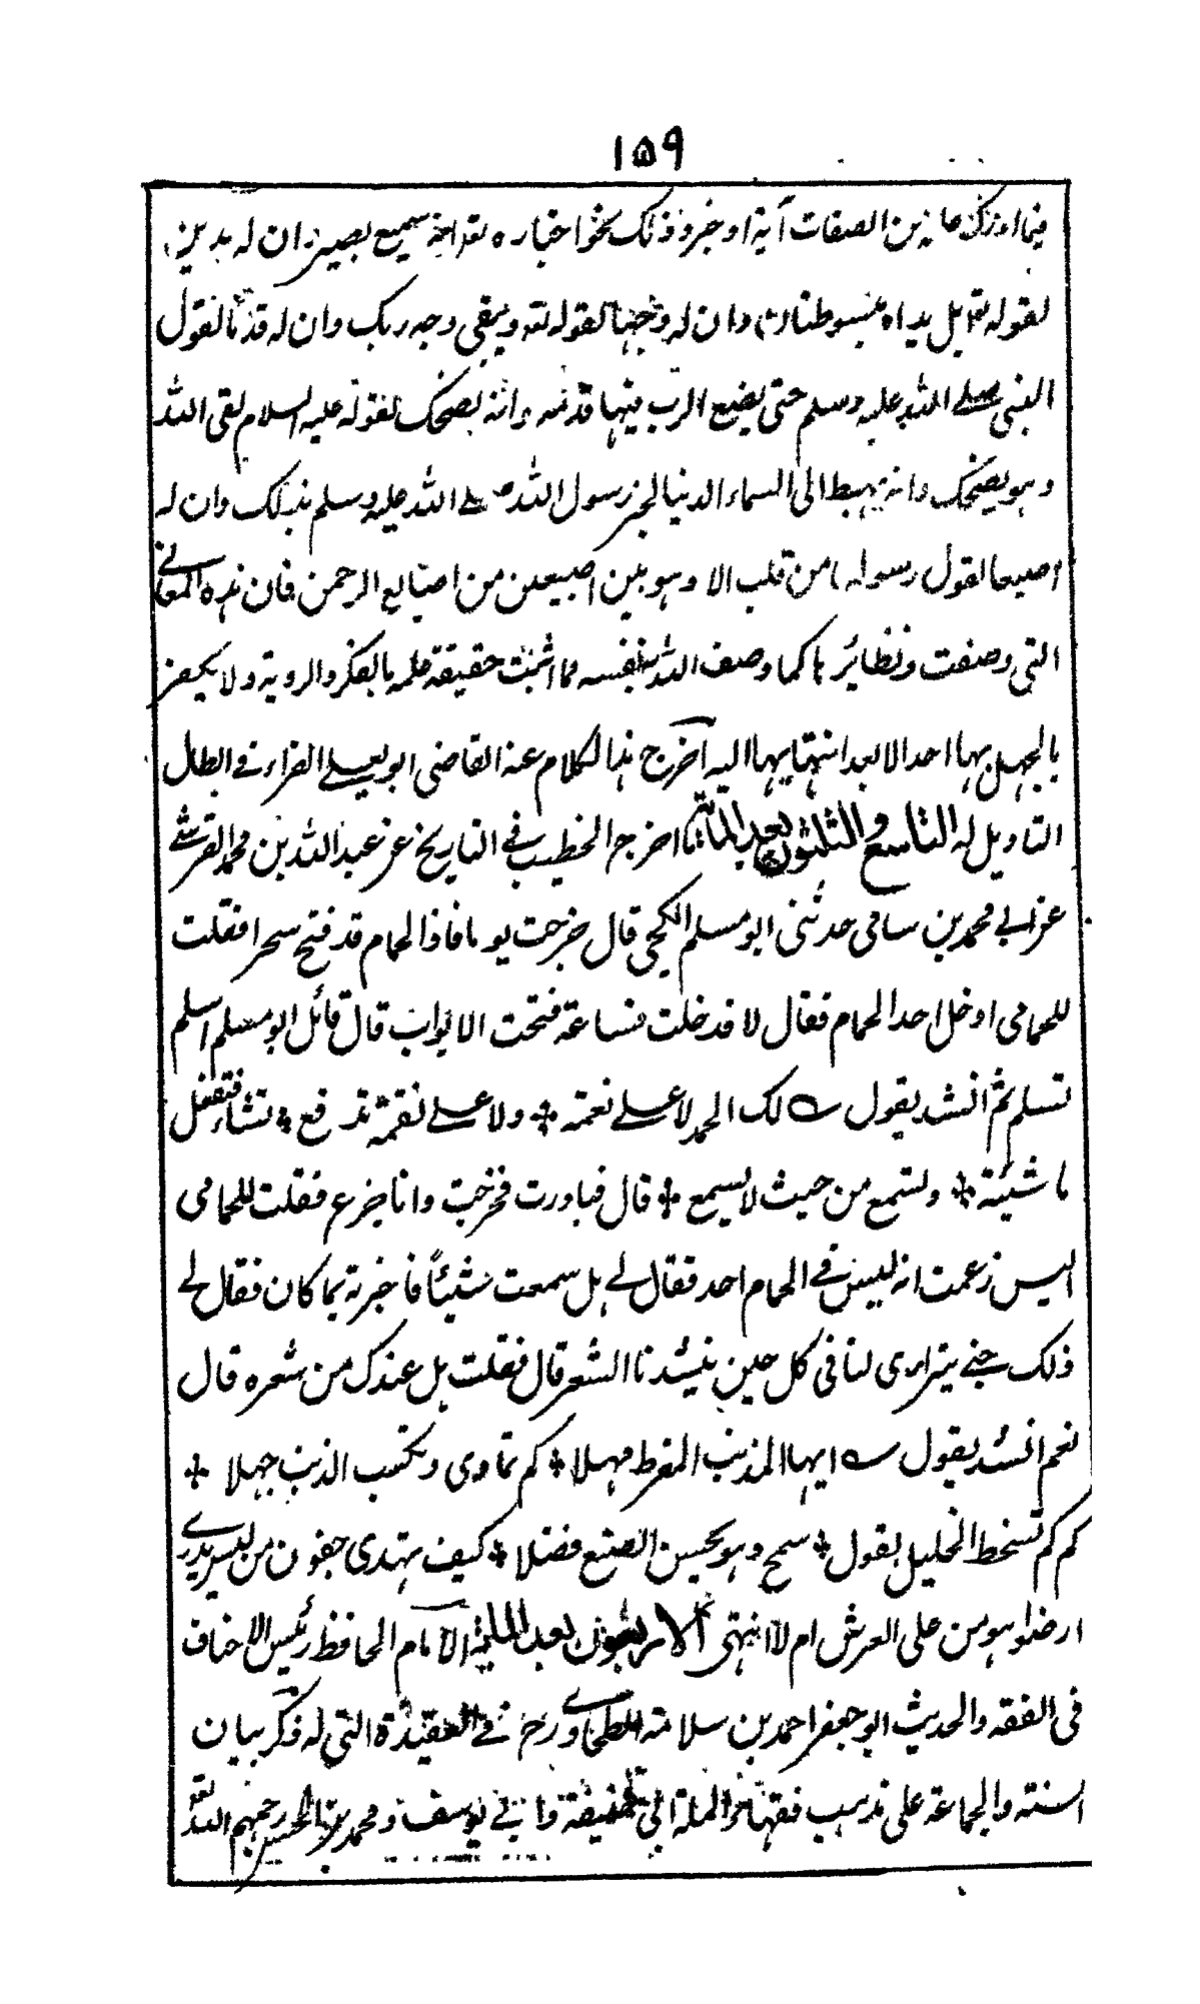 ١٥٩
من الصفات آية او خبر وذلك نحو اخباره تعه انه سميع بصير وان له يدين
لقوله تعه بل يداه مبسوطتان وان له وجها لقوله تعه ويبقى وجه ربك وان له قدما لقول
النبى صلے اللہ علیہ وسلم حتى يضع الرب فيها قدمه وانه يضحك لقوله عليه السلام لقى اللہ
وهو يضحك وانه يهبط الى السماء الدنيا لخبر رسول اللہ صلے اللہ علیہ وسلم بذلك وان له
اصبعا لقول رسوله ما من قلب الا وهو بين اصبعين من اصابع الرحمن فان هذه المعانے
التى وصفت ونظائرها كما وصف اللہ بنفسه مما اثبت حقيقة علمه بالفكر والروية ولا يكفر
بالجهل بها احد الا بعد انتهايها اليه اخرج هذا الكلام عنه القاضى ابو يعلے الفراء فے ابطال
التاويل له التاسع والثلثون بعد المائة ما اخرج الخطيب فے التاريخ عن عبد اللہ بن محمد القرشے
عن ابے محمد بن سامى حدثنى ابو مسلم الكجى قال خرجت يوما فاذا الحمام قد فتح سحرا فقلت
للحمامى ادخل احد الحمام فقال لا فدخلت فساعة فتحت الابواب قال قائل ابو مسلم اسلم
تسلم ثم انشد يقول لك الحمد لا علے نعمة * ولا علے نقمة تدفع * تشاء فتفعل
ما شئته * وتسمع من حيث لا يسمع * قال فبادرت فخرجت وانا جزع فقلت للحمامى
اليس زعمت انه ليس فے الحمام احد فقال لے هل سمعت شيئاً فاخبرته بما كان فقال لے
ذلك جنے يترايى لنا فى كل حين ينشدنا الشعر قال فقلت هل عندك من شعره قال
نعم انشد يقول ايها المذنب المفرط مهلا * كم تمادى وتكسب الذنب جهلا *
كم كم تسخط الجليل بقول * سمج وهو يحسن الصنع فضلا * كيف يهتدى جفون من ليس يدرے
ارضا وهو من على العرش ام لا انتهى الاربعون بعد المائة الامام الحافظ رئيس الاحناف
فى الفقه والحديث ابو جعفر احمد بن سلامة الطحاوے رح فے العقيدة التى له ذكر بيان
السنة والجماعة على مذهب فقهاء الملة ابى حنيفة وابے يوسف ومحمد بن الحسن رحمهم اللہ تعه